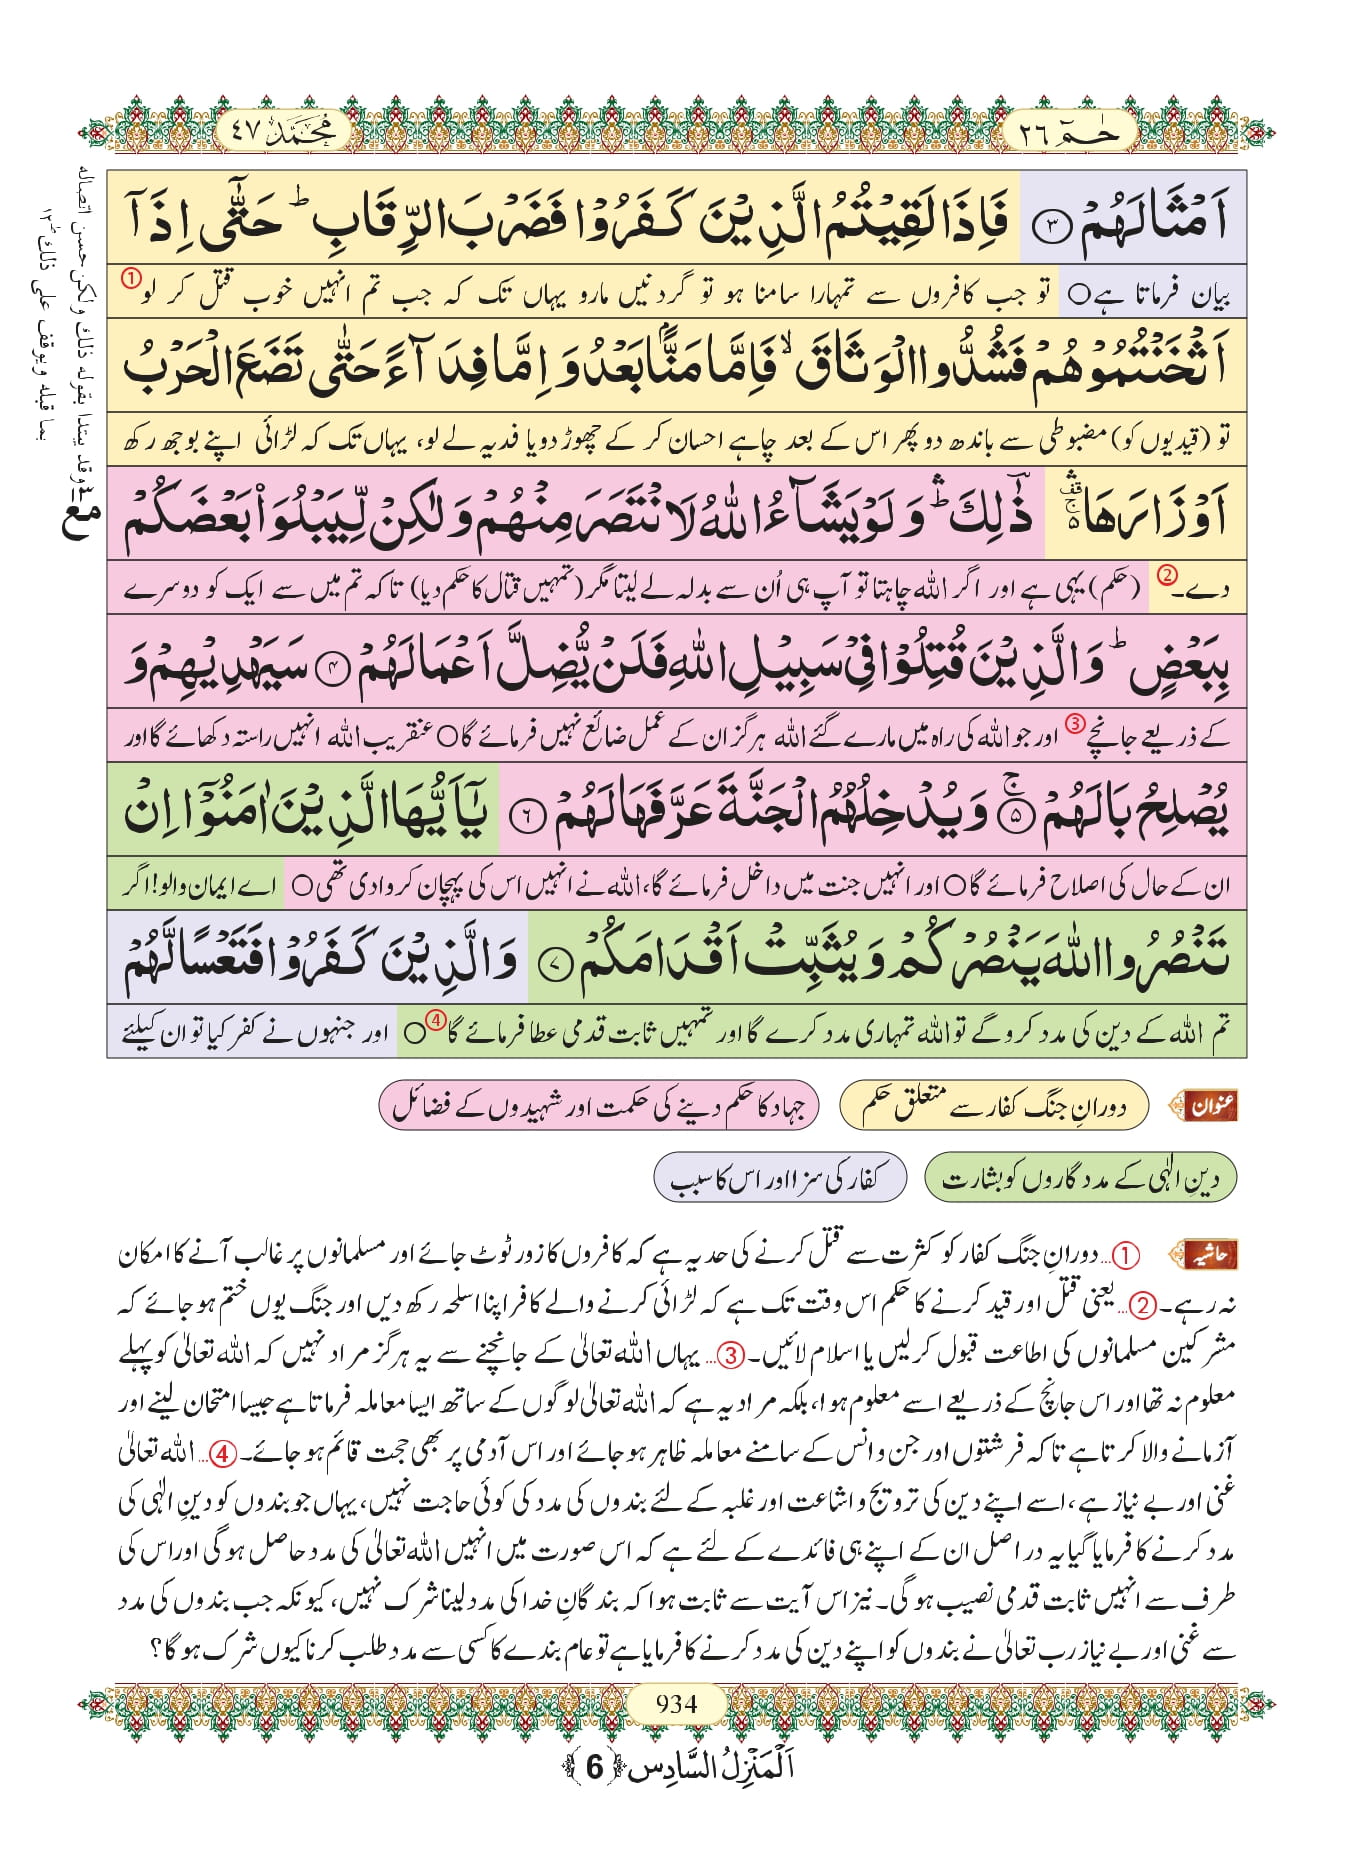 حٰمٓ ٢٦
مُحَمَّد ٤٧
اَمْثَالَهُمْ ﴿۳﴾ فَاِذَا لَقِیْتُمُ الَّذِیْنَ كَفَرُوْا فَضَرْبَ الرِّقَابِ ؕ حَتّٰۤى اِذَاۤ
بیان فرماتا ہے○ تو جب کافروں سے تمہارا سامنا ہو تو گردنیں مارو یہاں تک کہ جب تم انہیں خوب قتل کر لو ①
اَثْخَنْتُمُوْهُمْ فَشُدُّوا الْوَثَاقَ ۙ فَاِمَّا مَنًّۢا بَعْدُ وَ اِمَّا فِدَآءً حَتّٰى تَضَعَ الْحَرْبُ
تو (قیدیوں کو) مضبوطی سے باندھ دو پھر اس کے بعد چاہے احسان کر کے چھوڑ دو یا فدیہ لے لو، یہاں تک کہ لڑائی اپنے بوجھ رکھ
اَوْزَارَهَا ۛ۫ ذٰلِكَ ؕۛ وَ لَوْ یَشَآءُ اللّٰهُ لَا نْتَصَرَ مِنْهُمْ وَ لٰكِنْ لِّیَبْلُوَاۡ بَعْضَكُمْ
دے۔② (حکم) یہی ہے اور اگر اللہ چاہتا تو آپ ہی اُن سے بدلہ لے لیتا مگر (تمہیں قتال کا حکم دیا) تاکہ تم میں سے ایک کو دوسرے
بِبَعْضٍ ؕ وَ الَّذِیْنَ قُتِلُوْا فِیْ سَبِیْلِ اللّٰهِ فَلَنْ یُّضِلَّ اَعْمَالَهُمْ ﴿۴﴾ سَیَهْدِیْهِمْ وَ
کے ذریعے جانچے③ اور جو اللہ کی راہ میں مارے گئے اللہ ہرگز ان کے عمل ضائع نہیں فرمائے گا○ عنقریب اللہ انہیں راستہ دکھائے گا اور
یُصْلِحُ بَالَهُمْ ﴿۵﴾ۚ وَ یُدْخِلُهُمُ الْجَنَّةَ عَرَّفَهَا لَهُمْ ﴿۶﴾ یٰۤاَیُّهَا الَّذِیْنَ اٰمَنُوْۤا اِنْ
ان کے حال کی اصلاح فرمائے گا○ اور انہیں جنت میں داخل فرمائے گا، اللہ نے انہیں اس کی پہچان کروا دی تھی○ اے ایمان والو! اگر
تَنْصُرُوا اللّٰهَ یَنْصُرْكُمْ وَ یُثَبِّتْ اَقْدَامَكُمْ ﴿۷﴾ وَ الَّذِیْنَ كَفَرُوْا فَتَعْسًا لَّهُمْ
تم اللہ کے دین کی مدد کرو گے تو اللہ تمہاری مدد کرے گا اور تمہیں ثابت قدمی عطا فرمائے گا④○ اور جنہوں نے کفر کیا تو ان کیلئے
مع
وقد يبتدا بقوله ذلك ولكن حسن اتصاله
بما قبله ويوقف على ذلك ١٢
عنوان دورانِ جنگ کفار سے متعلق حکم جہاد کا حکم دینے کی حکمت اور شہیدوں کے فضائل
دینِ الٰہی کے مددگاروں کو بشارت کفار کی سزا اور اس کا سبب
حاشیہ ①... دورانِ جنگ کفار کو کثرت سے قتل کرنے کی حد یہ ہے کہ کافروں کا زور ٹوٹ جائے اور مسلمانوں پر غالب آنے کا امکان
نہ رہے۔ ②... یعنی قتل اور قید کرنے کا حکم اس وقت تک ہے کہ لڑائی کرنے والے کافر اپنا اسلحہ رکھ دیں اور جنگ یوں ختم ہو جائے کہ
مشرکین مسلمانوں کی اطاعت قبول کرلیں یا اسلام لائیں۔ ③... یہاں اللہ تعالیٰ کے جانچنے سے یہ ہرگز مراد نہیں کہ اللہ تعالیٰ کو پہلے
معلوم نہ تھا اور اس جانچ کے ذریعے اسے معلوم ہوا، بلکہ مراد یہ ہے کہ اللہ تعالیٰ لوگوں کے ساتھ ایسا معاملہ فرماتا ہے جیسا امتحان لینے اور
آزمانے والا کرتا ہے تاکہ فرشتوں اور جن و انس کے سامنے معاملہ ظاہر ہو جائے اور اس آدمی پر بھی حجت قائم ہو جائے۔ ④... اللہ تعالیٰ
غنی اور بے نیاز ہے، اسے اپنے دین کی ترویج و اشاعت اور غلبہ کے لئے بندوں کی مدد کی کوئی حاجت نہیں، یہاں جو بندوں کو دینِ الٰہی کی
مدد کرنے کا فرمایا گیا یہ در اصل ان کے اپنے ہی فائدے کے لئے ہے کہ اس صورت میں انہیں اللہ تعالیٰ کی مدد حاصل ہوگی اور اس کی
طرف سے انہیں ثابت قدمی نصیب ہوگی۔ نیز اس آیت سے ثابت ہوا کہ بندگانِ خدا کی مدد لینا شرک نہیں، کیونکہ جب بندوں کی مدد
سے غنی اور بے نیاز رب تعالیٰ نے بندوں کو اپنے دین کی مدد کرنے کا فرمایا ہے تو عام بندے کا کسی سے مدد طلب کرنا کیوں شرک ہوگا؟
934
اَلْمَنْزِلُ السَّادِس ﴿6﴾